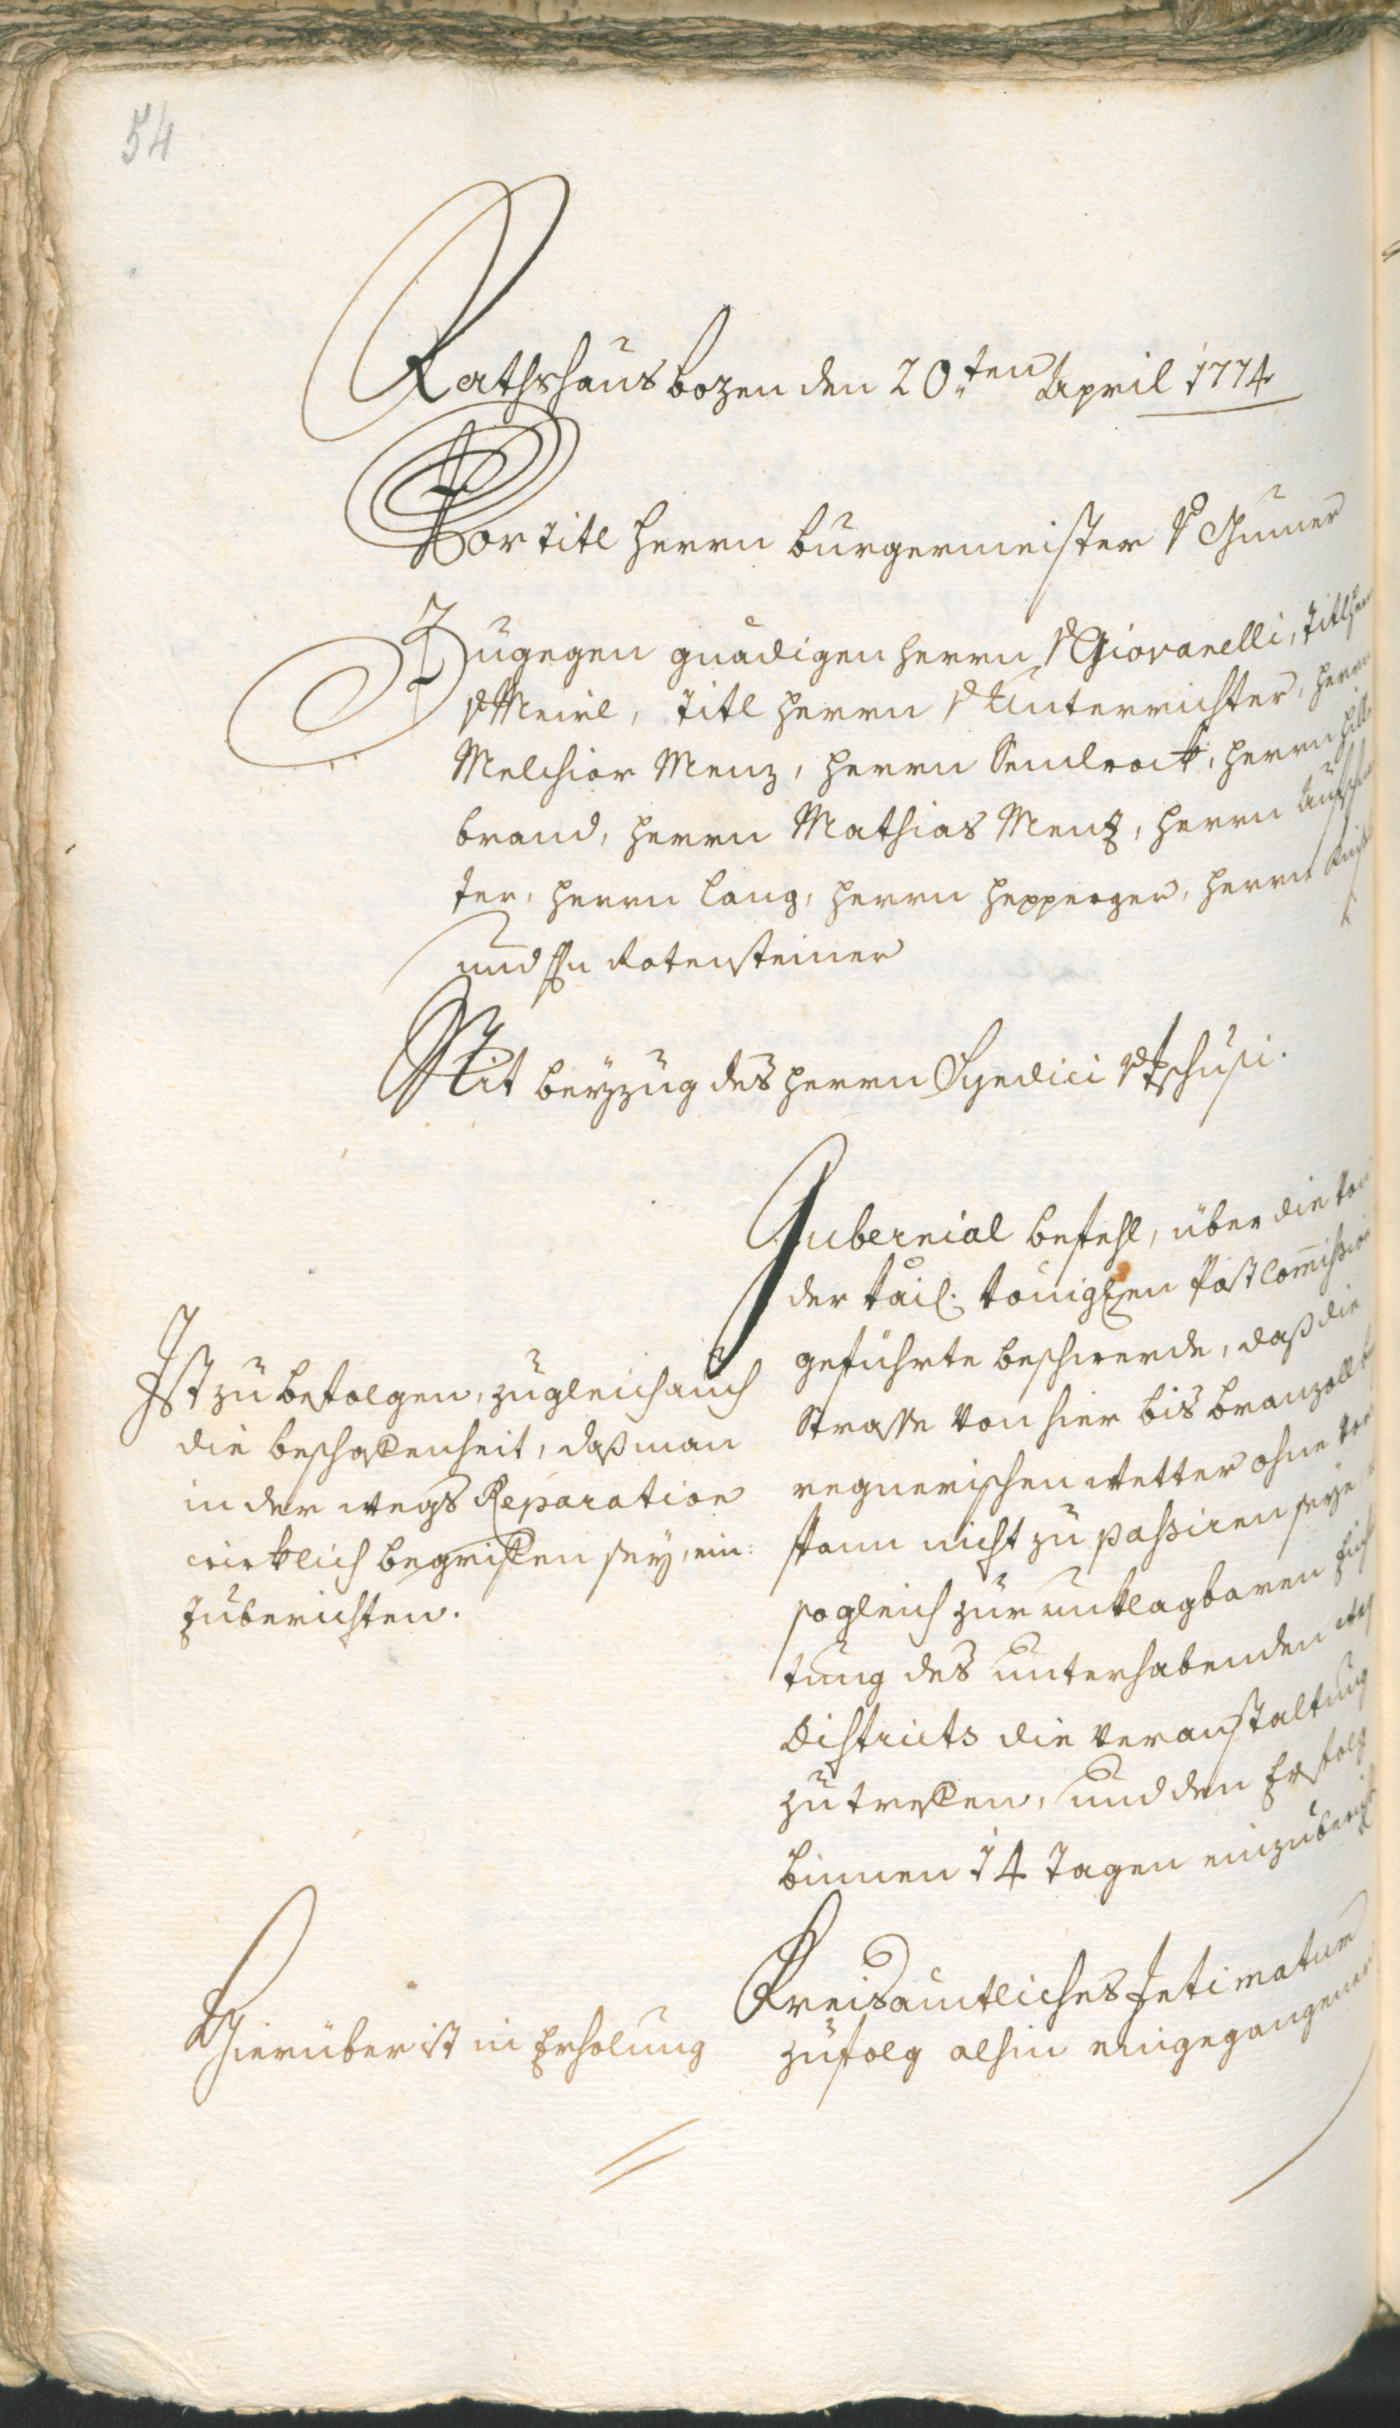 54
Rathshaus bozen den 20ten April 1774
Vor titl herrn burgermeister v Gumer
Zugegen gnädigen herrn v Giovanelli, titl herrn
v Meirl, titl herrn v Unterrichter, herrn
Melchior Menz, herrn Sendrock, herrn hille
brand, herrn Mathias Menz, herrn Aufschnei
ter, herrn lang, herrn hepperger, herrn
und hn Rotensteiner
Mit beyzug des herrn Syndici v Tschusi.
Gubernial befehl, über die von
der kaiß. königlen Post Commission
geführte beschwerde, daß die
Strasse von hier bis branzoll bey
regnerischen wetter ohne vor
spann nicht zu passiren seye
sogleich zur unklagbaren Rich
tung des unterhabenden weg
Districts die veranstaltung
zu treffen, und den Erfolg
binnen 14 Tagen einzubericht
Ist zu befolgen, zugleich auch
die beschaffenheit, daß man
in der wegs Reparation
wirklich begriffen sey, ein:
zuberichten.
Kreisämtliches Intimatum
zufolg alhin eingegangenen
Hierüber ist in Erholung